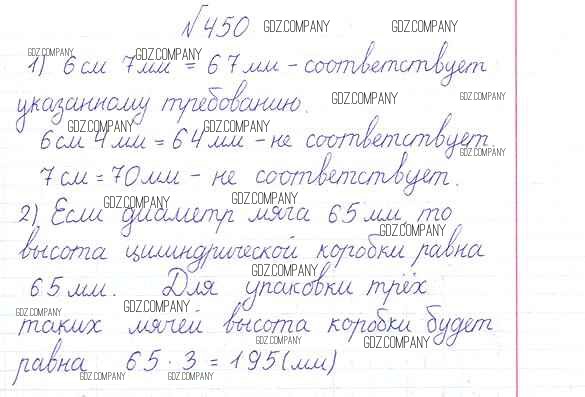 №450 GDZ.COMPANY GDZ.COMPANY
GDZ.COMPANY GDZ.COMPANY
1) 6 см 7 мм = 67 мм - соответствует
указанному требованию. GDZ.COMPANY GDZ.COMPANY
GDZ.COMPANY GDZ.COMPANY
6 см 4 мм = 64 мм - не соответствует
GDZ.COMPANY
7 см = 70 мм - не соответствует.
GDZ.COMPANY GDZ.COMPANY
2) Если диаметр мяча 65 мм, то
GDZ.COMPANY
высота цилиндрической коробки равна
GDZ.COMPANY
65 мм. Для упаковки трёх
GDZ.COMPANY GDZ.COMPANY
таких мячей высота коробки будет
GDZ.COMPANY GDZ.COMPANY
равна 65 · 3 = 195 (мм)
GDZ.COMPANY GDZ.COMPANY